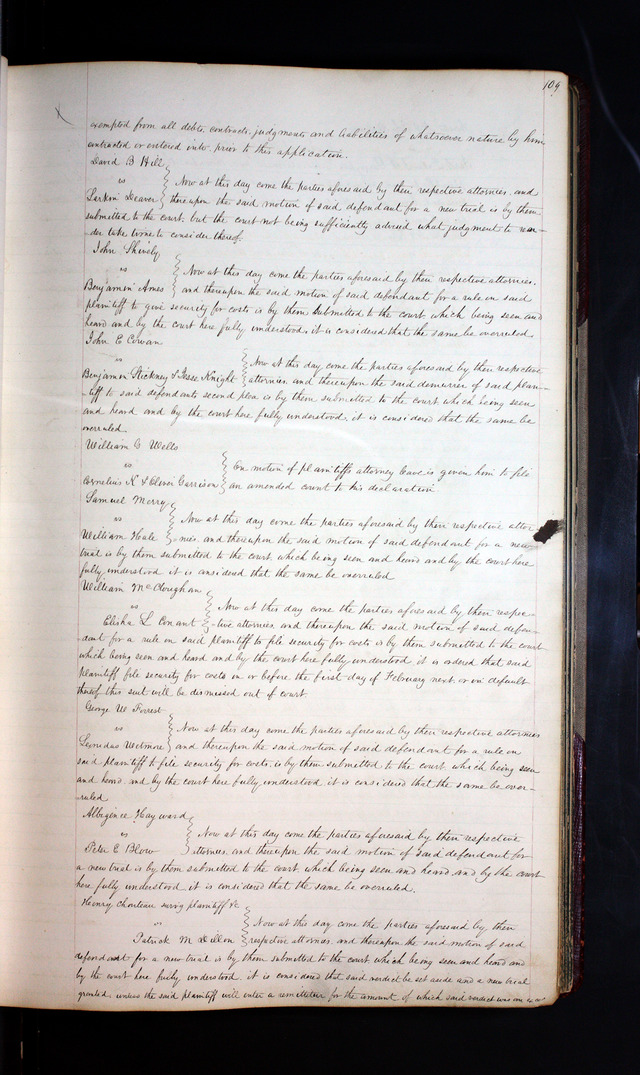 109
exempted from all debts, contracts, judgments and liabilities of whatsoever nature by him
contracted or entered into prior to this application.
David B Hill
vs } Now at this day come the parties aforesaid by their respective attornies, and
Larkin Deaver } thereupon the said motion of said defendant for a new trial is by them
submitted to the court, but the court not being sufficiently advised what judgment to ren-
der take time to consider thereof.
John Shively
vs } Now at this day come the parties aforesaid by their respective attornies,
Benjamin Ames } and thereupon the said motion of said defendant for a rule on said
plaintiff to give security for costs is by them submitted to the court, which being seen and
heard and by the court here fully understood, it is considered that the same be overruled.
John E Cowan
vs } Now at this day come the parties aforesaid by their respective
Benjamin Stickney & Jesse Knight } attornies, and thereupon the said demurrer of said plain-
tiff to said defendants second plea is by them submitted to the court, which being seen
and heard and by the court here fully understood, it is considered that the same be
overruled.
William C Wells
vs } On motion of plaintiffs attorney leave is given him to file
Cornelius K & Oliver Garrison } an amended count to his declaration
Samuel Merry
vs } Now at this day come the parties aforesaid by their respective attor-
William Heale } nies, and thereupon the said motion of said defendant for a new
trial is by them submitted to the court, which being seen and heard and by the court here
fully understood it is considered that the same be overruled
William McCloughan
vs } Now at this day come the parties aforesaid by their respec-
Elisha L Conant } tive attornies, and thereupon the said motion of said defen-
dant for a rule on said plaintiff to file security for costs is by them submitted to the court
which being seen and heard and by the court here fully understood it is ordered that said
plaintiff file security for costs on or before the first day of February next, or in default
thereof this suit will be dismissed out of court
George W Forrest
vs } Now at this day come the parties aforesaid by their respective attornies
Leonidas Wetmore } and thereupon the said motion of said defendant for a rule on
said plaintiff to file security for costs, is by them submitted to the court, which being seen
and heard, and by the court here fully understood, it is considered that the same be over-
ruled
Albigence Hayward
vs } Now at this day come the parties aforesaid by their respective
Peter E Blow } attornies, and thereupon the said motion of said defendant for
a new trial is by them submitted to the court, which being seen and heard, and by the court
here fully understood, it is considered that the same be overruled.
Henry Chouteau survg plaintiff &c
vs } Now at this day come the parties aforesaid by, their
Patrick M Dillon } respective attornies, and thereupon the said motion of said
defendant for a new trial is by them submitted to the court which being seen and heard and
by the court here fully understood, it is considered that said verdict be set aside and a new trial
granted, unless the said plaintiff will enter a remittitur for the amount of which said verdict was